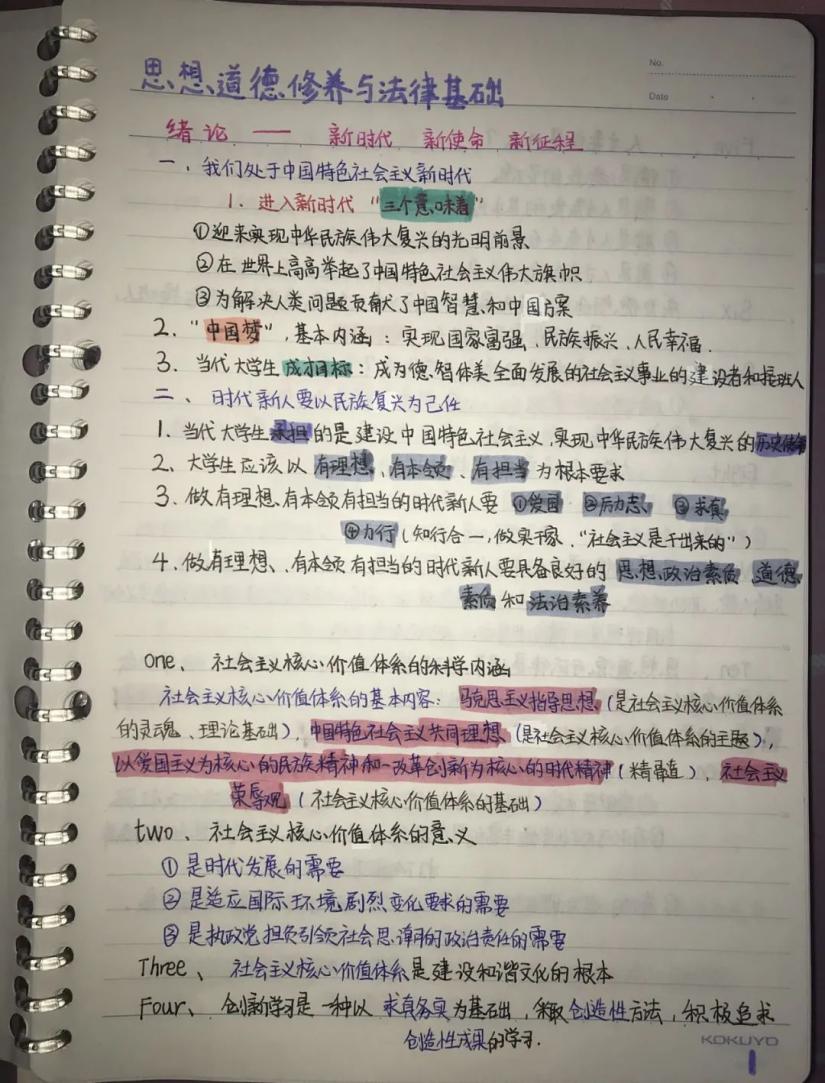 No.
Date
思想道德修养与法律基础
绪论 —— 新时代 新使命 新征程
一、我们处于中国特色社会主义新时代
1. 进入新时代 "三个意味着"
①迎来实现中华民族伟大复兴的光明前景
②在世界上高高举起了中国特色社会主义伟大旗帜
③为解决人类问题贡献了中国智慧和中国方案
2. "中国梦",基本内涵:实现国家富强、民族振兴、人民幸福.
3. 当代大学生成才目标:成为德智体美全面发展的社会主义事业的建设者和接班人
二、时代新人要以民族复兴为己任
1. 当代大学生承担的是建设中国特色社会主义,实现中华民族伟大复兴的历史使命
2、大学生应该以有理想、有本领、有担当为根本要求
3. 做有理想、有本领有担当的时代新人要 ①爱国 ②厉志、 ③求真
④力行(知行合一,做实干家、"社会主义是干出来的")
4. 做有理想、有本领有担当的时代新人要具备良好的思想政治素质、道德
素质和法治素养
one、 社会主义核心价值体系的科学内涵
社会主义核心价值体系的基本内容:马克思主义指导思想,(是社会主义核心价值体系
的灵魂、理论基础),中国特色社会主义共同理想、(是社会主义核心价值体系的主题),
以爱国主义为核心的民族精神和以改革创新为核心的时代精神(精髓),社会主义
荣辱观(社会主义核心价值体系的基础)
two、社会主义核心价值体系的意义
① 是时代发展的需要
② 是适应国际环境剧烈变化要求的需要
③ 是执政党担负引领社会思潮的政治责任的需要
Three、 社会主义核心价值体系是建设和谐文化的根本
Four、 创新学习是一种以求真务实为基础,采取创造性方法,积极追求
创造性成果的学习.
KOKUYO
1